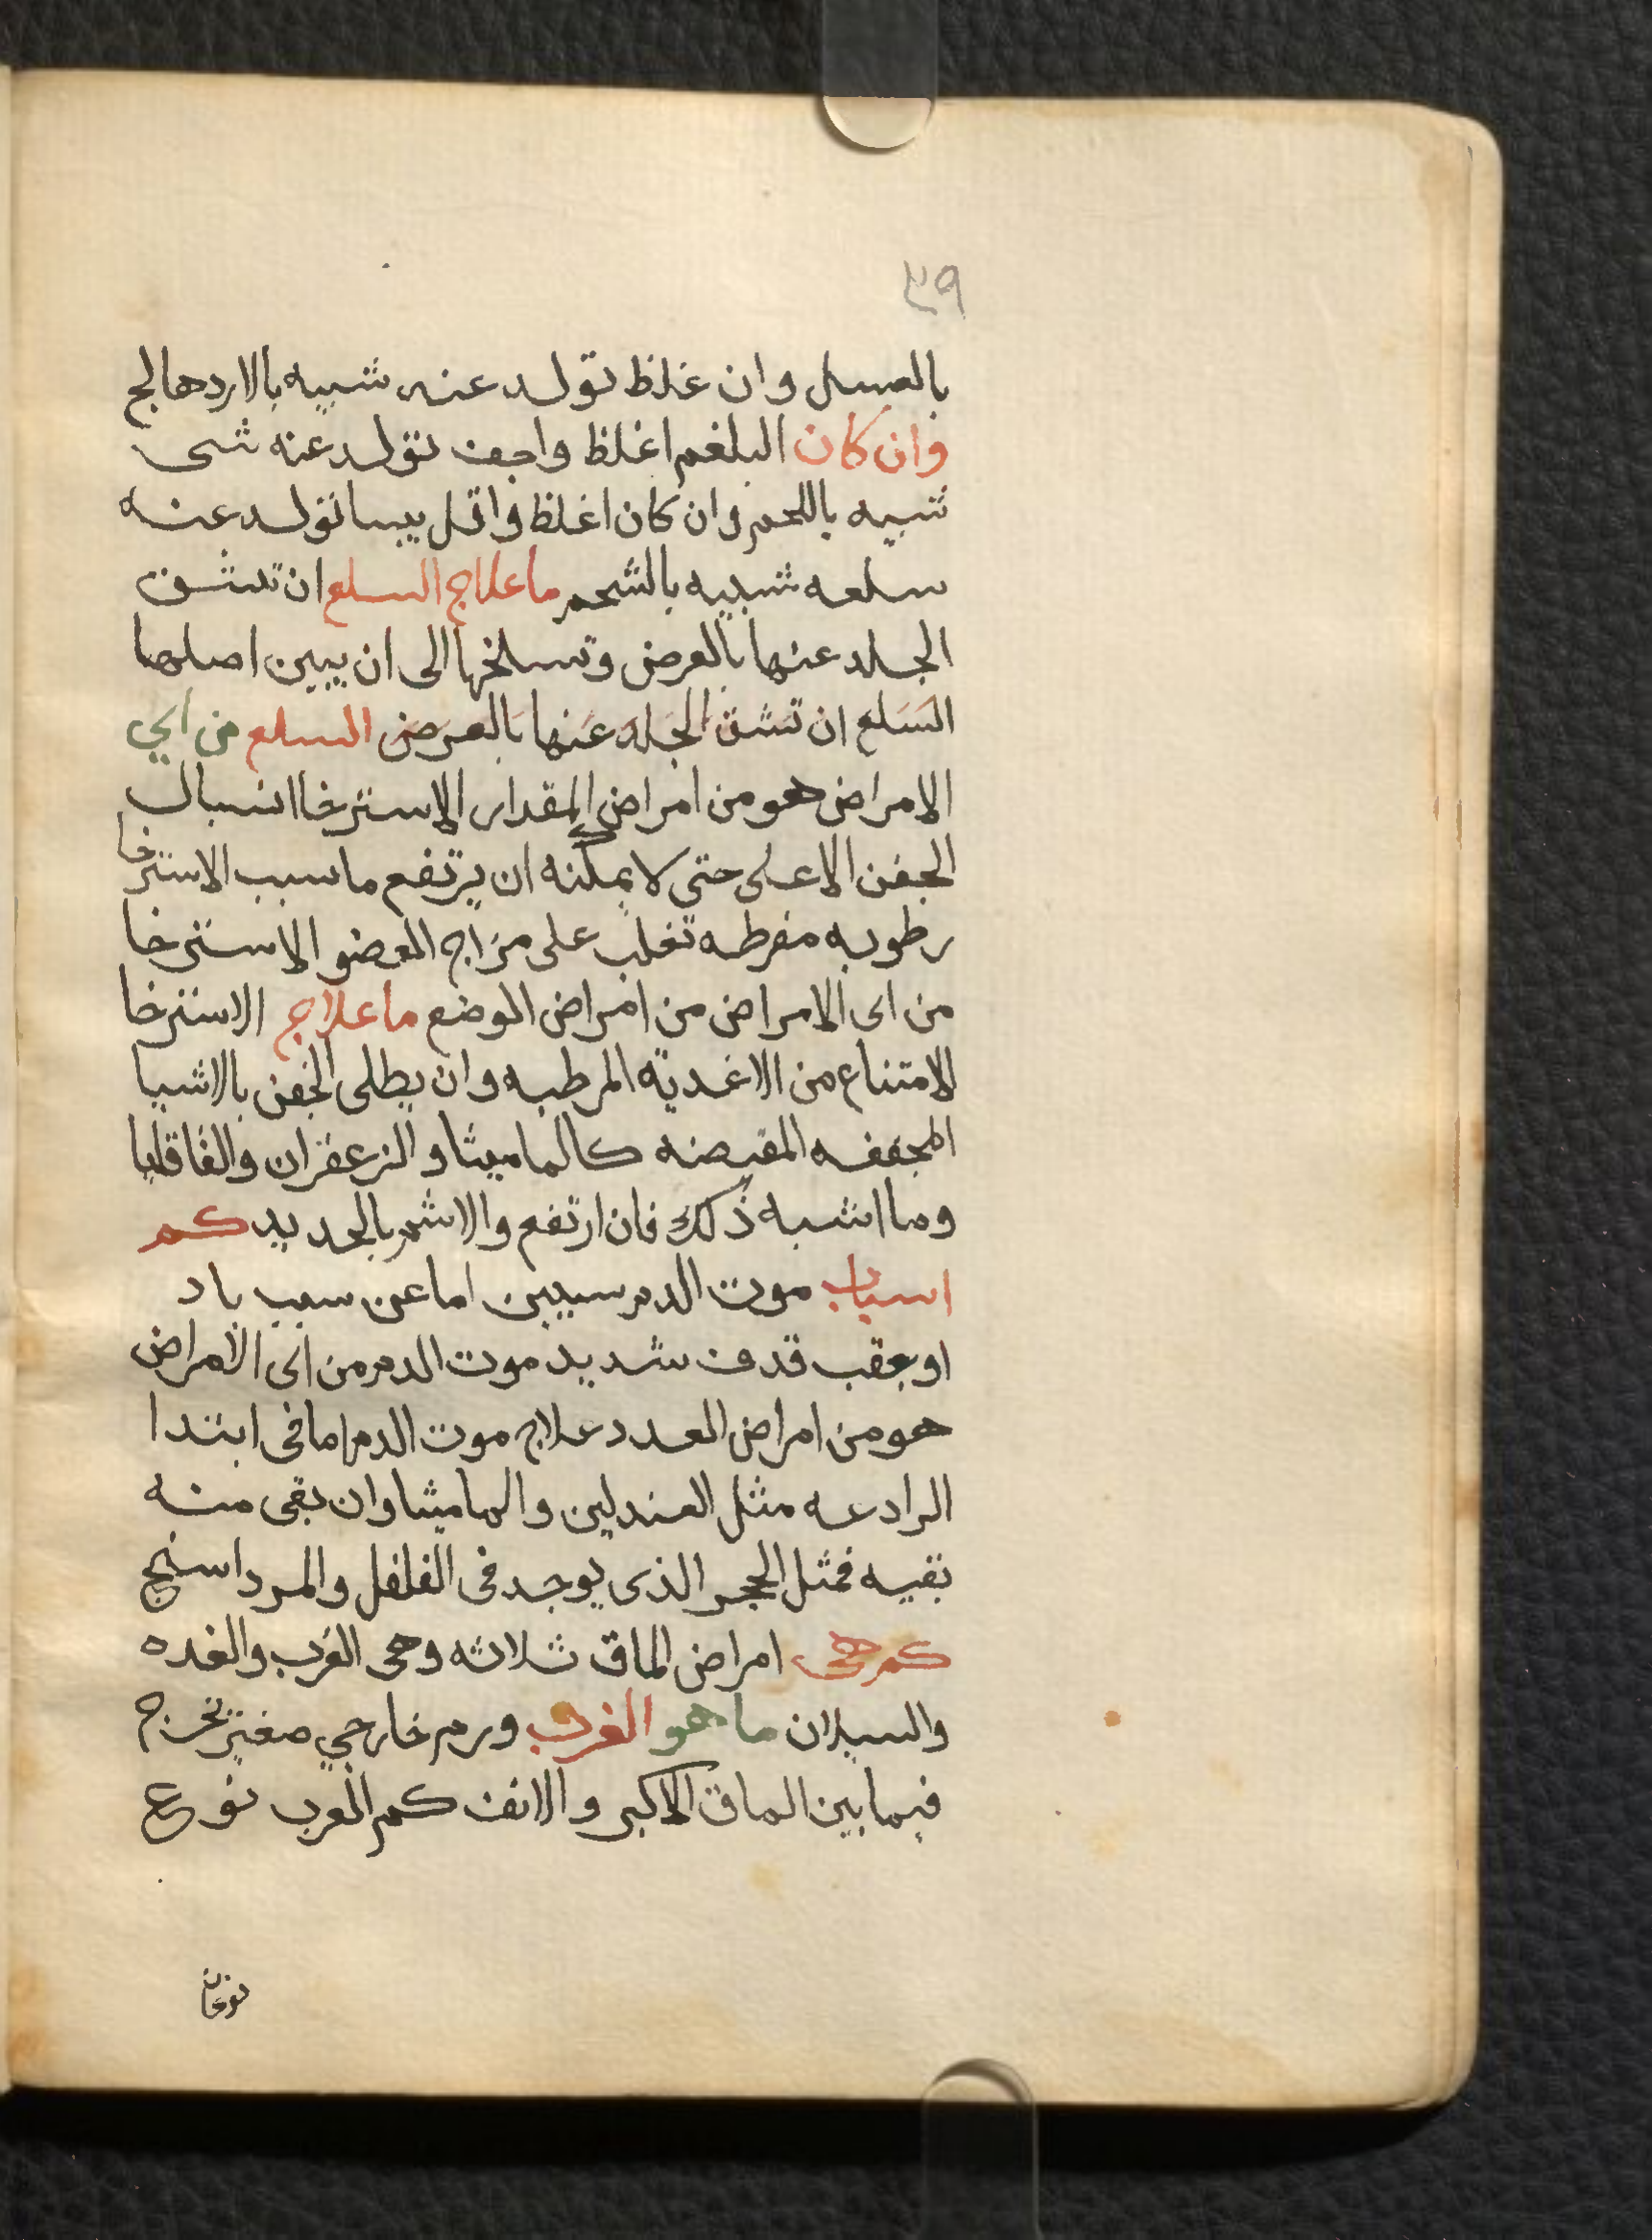 ٣٩
بالعسل وان غلظ تولد عنه شبيه بالاردهالج
وان كان البلغم اغلظ واجف تولد عنه شى
شبيه باللحم وان كان اغلظ واقل يبسا تولد عنه
سلعه شبيه بالشحم ما علاج السلع ان تشق
الجلد عنها بالعرض وتسلخها الى ان يبين اصلها
السلع ان تشق الجلد عنها بالعرض السلع من اى
الامراض هو من امراض المقدار الاسترخا انسبال
الجفن الاعلى حتى لا يمكنه ان يرتفع ما سبب الاسترخا
رطوبه مفرطه تغلب على مزاج العضو الاسترخا
من اى الامراض من امراض الموضع ما علاج الاسترخا
الامتناع من الاغديه المرطبه وان يطلى الجفن بالاشيا
المجففه المقبضه كالماميثا والزعفران والقاقليا
وما اشبه ذلك فان ارتفع والا شمر بالحديد كم
اسباب موت الدم سببين اما عن سبب باد
او بعقب قدف شديد موت الدم من اى الامراض
هو من امراض العدد علاج موت الدم اما فى ابتدا
الرادعه مثل الصندلين والماميثا وان بقى منه
بقيه فمثل الحجر الذى يوجد فى الفلفل والمرداسنج
كم هى امراض الماق ثلاثه وهى الغرب والغده
والسيلان ما هو الغرب ورم خارجي صغير يخرج
فيما بين الماق الاكبر والانف كم الغرب نوع
نوعان